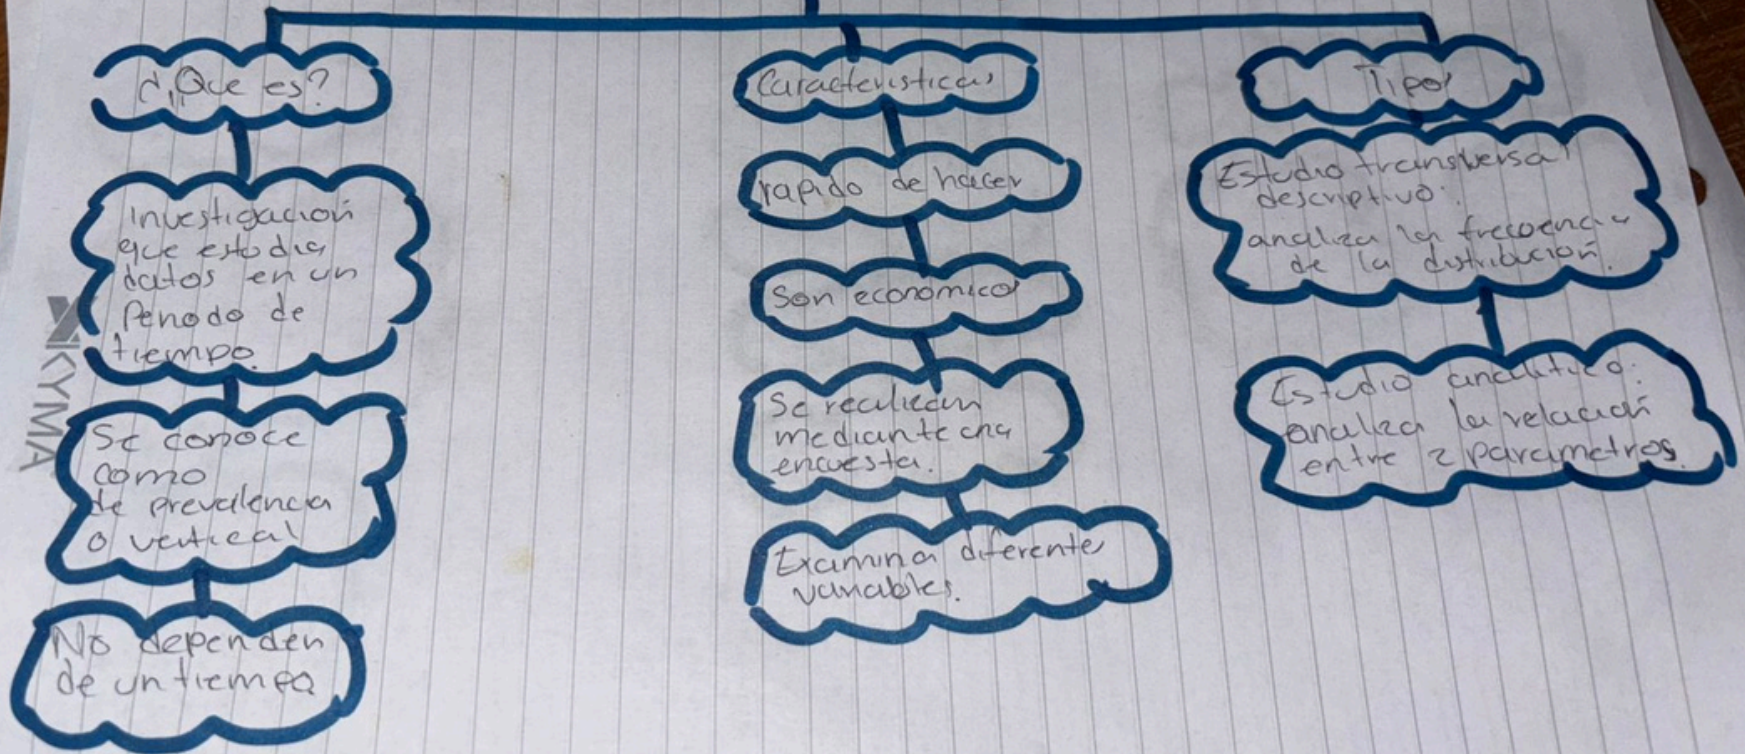 ¿Que es?
Investigación
que estudia
datos en un
Periodo de
tiempo.
Se conoce
como
de prevalencia
o vertical
No dependen
de un tiempo
Caracteristicas
rapido de hacer
Son economicos
Se realizan
mediante una
encuesta.
Examina diferentes
variables.
Tipos
Estudio transversal
descriptivo:
analiza la frecuencia
de la distribución.
Estudio analitico:
analiza la relación
entre 2 parametros.
KYMA